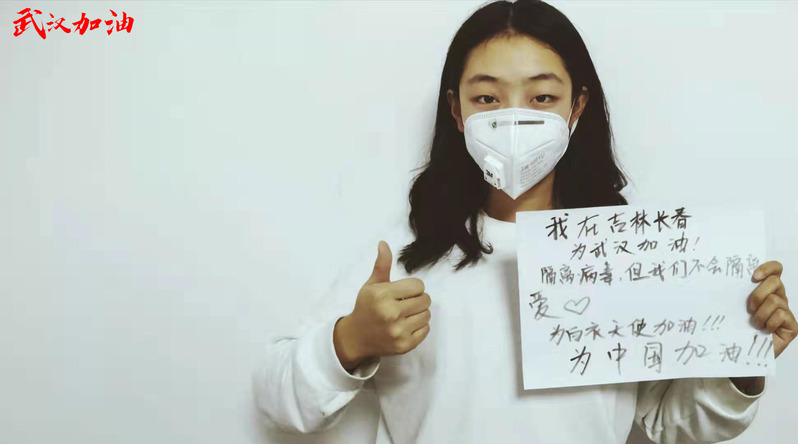 武汉加油
我在吉林长春
为武汉加油!
隔离病毒,但我们不会隔离
爱♡
为白衣天使加油!!!
为中国加油!!!
3M